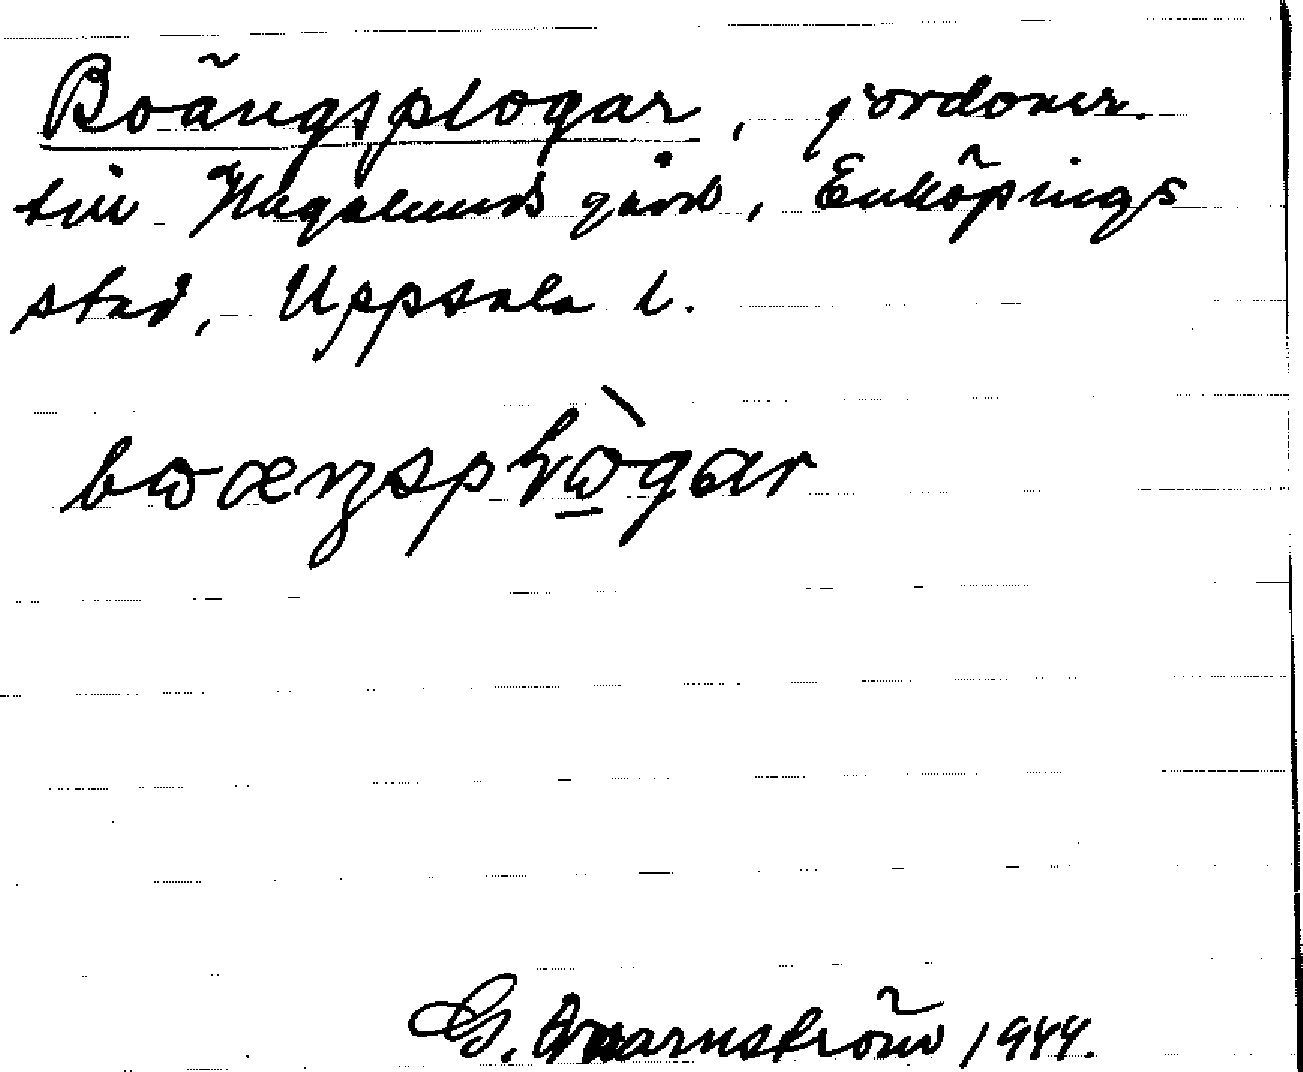 Boängsplogar, jordomr.
till Hagalunds gård, Enköpings
stad, Uppsala l.
bωæŋspɫὼ̱gar
G. Warnström 1944.